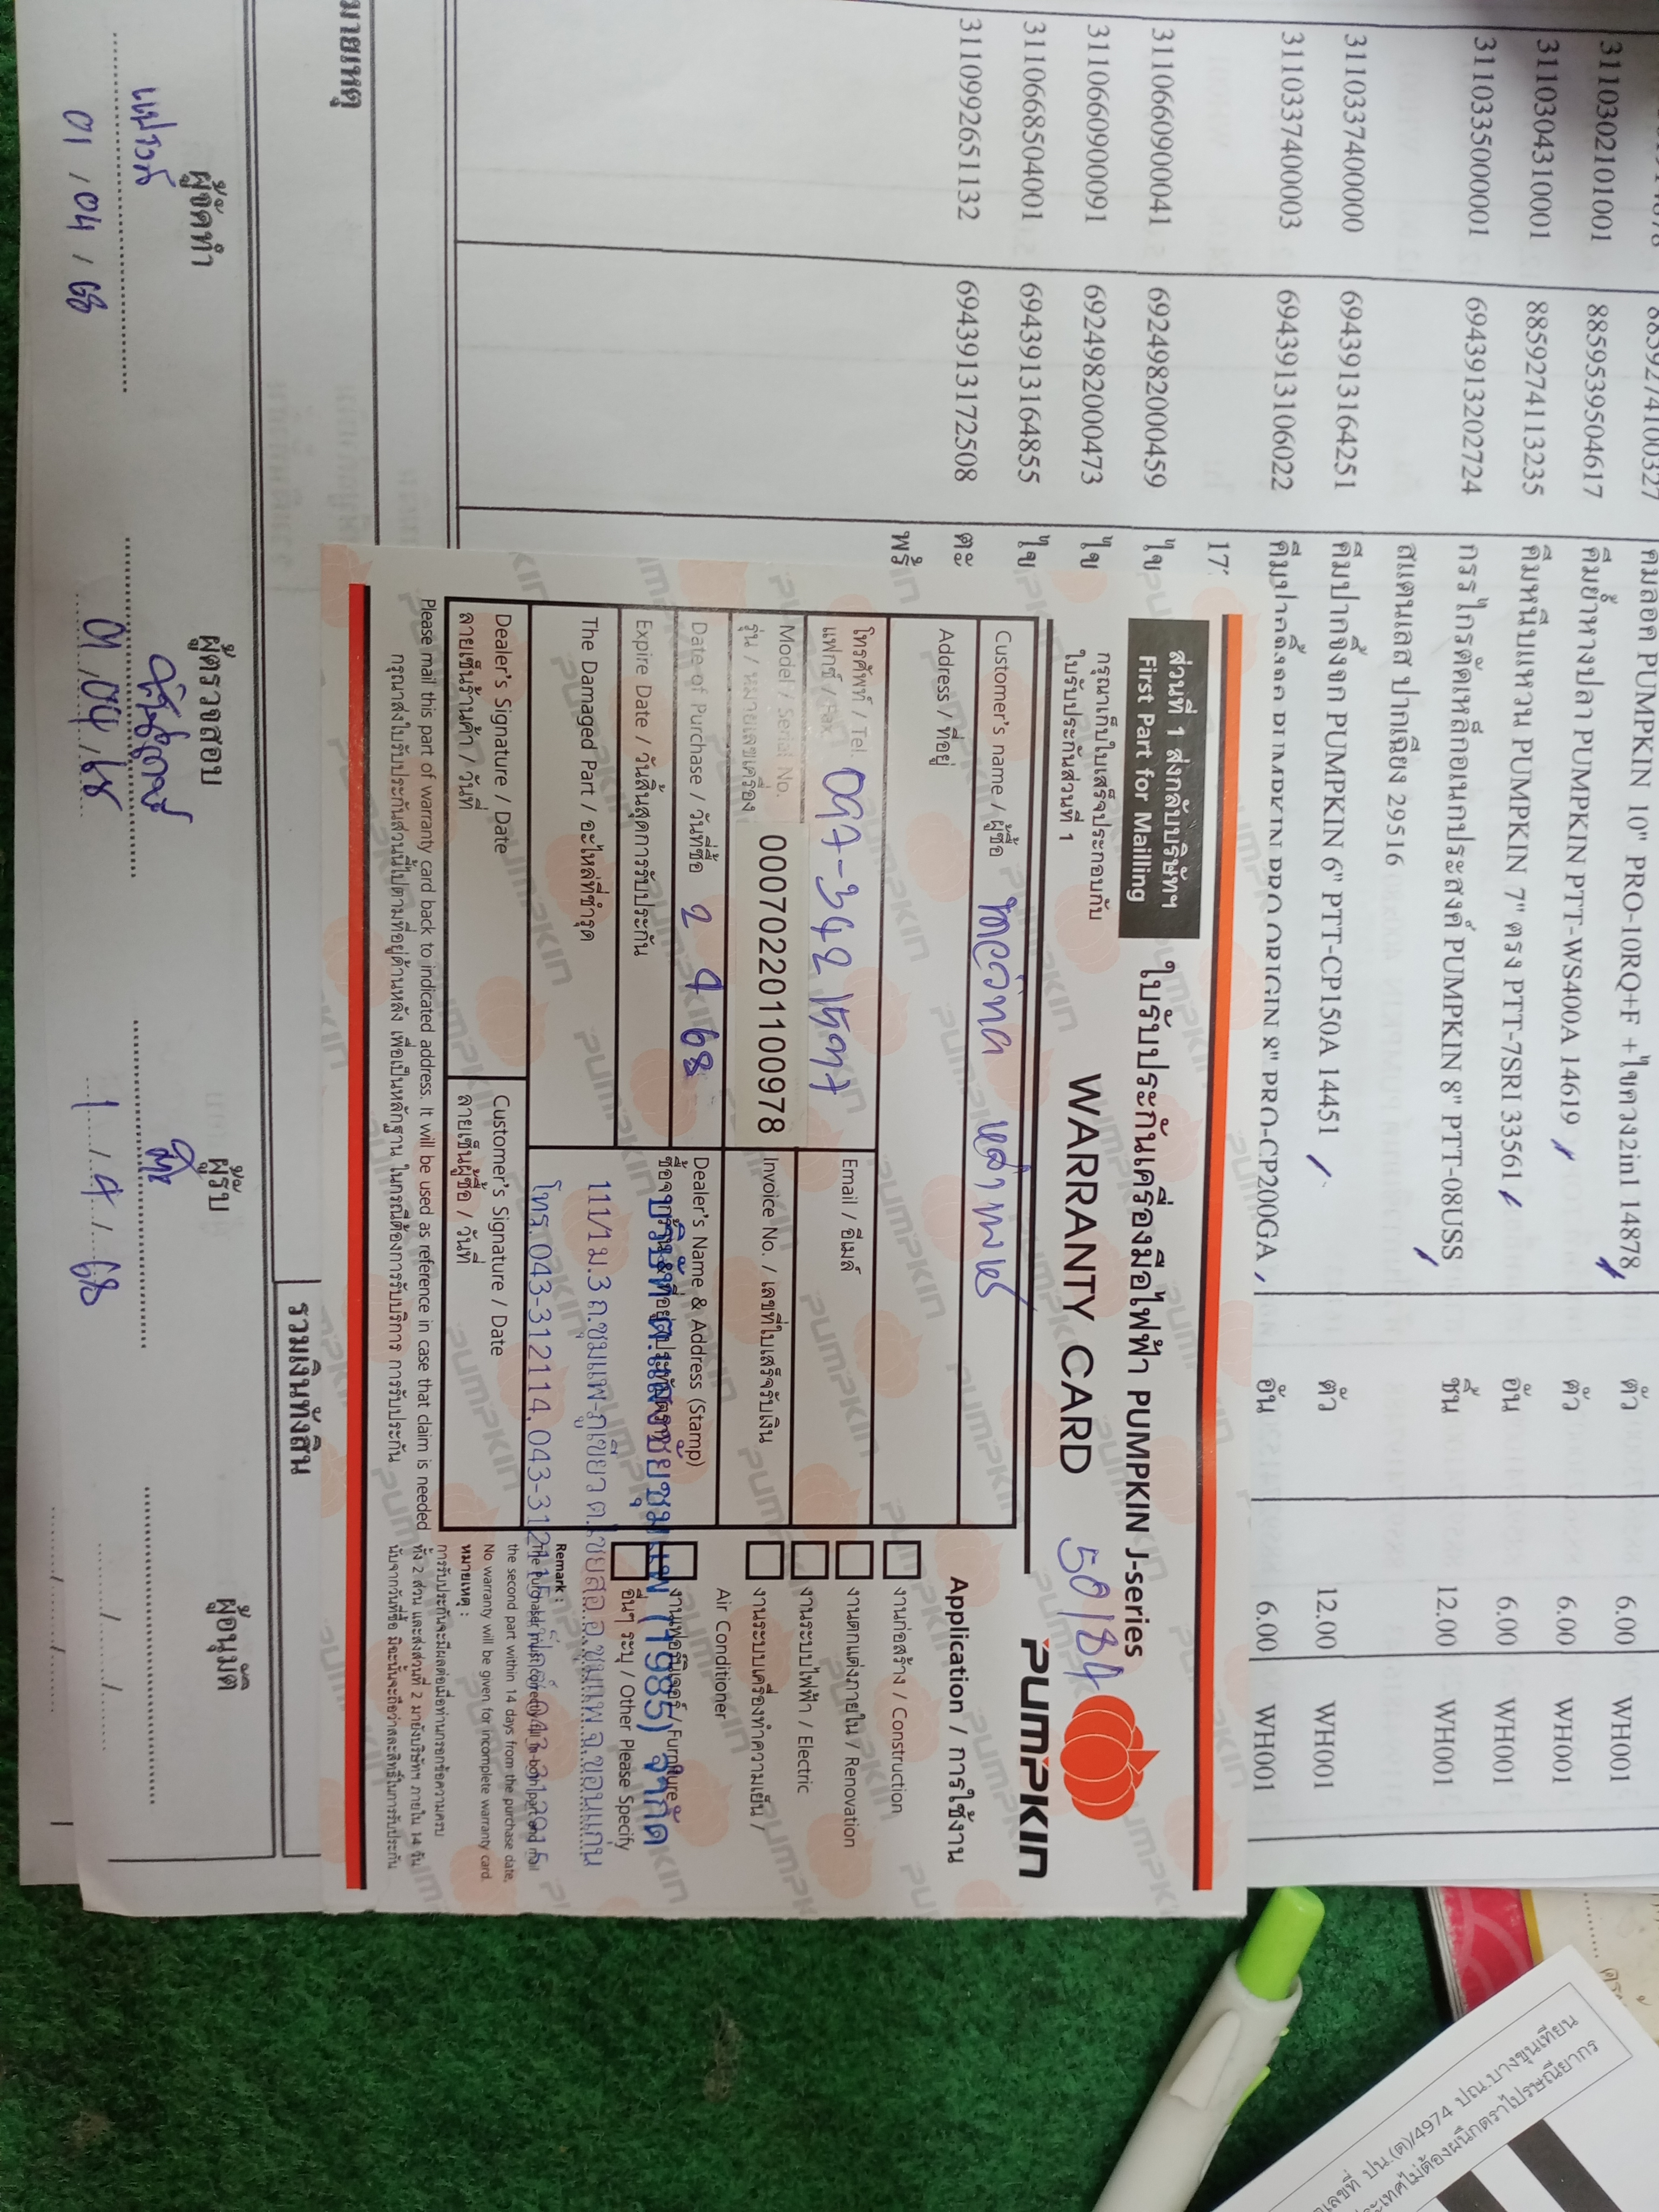 3110302101001 8859539504617 คีมย้ำหางปลา PUMPKIN PTT-WS400A 14619 ตัว 6.00 WH001
3110304310001 8859274113235 คีมหนีบแหวน PUMPKIN 7" ตรง PTT-7SRI 33561 อัน 6.00 WH001
3110335000001 6943913202724 กรรไกรตัดเหล็กอเนกประสงค์ PUMPKIN 8" PTT-08USS ชิ้น 12.00 WH001
สแตนเลส ปากเฉียง 29516
3110337400000 6943913164251 คีมปากจิ้งจก PUMPKIN 6" PTT-CP150A 14451 ตัว 12.00 WH001
3110337400003 6943913106022 คีมปากจิ้งจก PUMPKIN PRO ORIGIN 8" PRO-CP200GA อัน 6.00 WH001
3110660900041 6924982000459 ไข
3110660900091 6924982000473 ไข
3110668504001 6943913164855 ไข
3110992651132 6943913172508 ตะ
พร้
ส่วนที่ 1 ส่งกลับบริษัทฯ
First Part for Mailling
กรุณาเก็บใบเสร็จประกอบกับ
ใบรับประกันส่วนที่ 1
ใบรับประกันเครื่องมือไฟฟ้า PUMPKIN J-series
WARRANTY CARD 50184
PUMPKIN
Customer's name / ผู้ซื้อ
Address / ที่อยู่
โทรศัพท์ / Tel.
แฟกซ์ / Fax.
Email / อีเมล์
Model / Serial No.
รุ่น / หมายเลขเครื่อง
000702201100978
Invoice No. / เลขที่ใบเสร็จรับเงิน
Date of Purchase / วันที่ซื้อ 2 4 68
Expire Date / วันสิ้นสุดการรับประกัน
Dealer's Name & Address (Stamp)
บริษัท ต.แสงชัยชุมแพ (1985) จำกัด
111/1 ม.3 ถ.ชุมแพ-ภูเขียว ต.ไชยสอ อ.ชุมแพ จ.ขอนแก่น
โทร.043-312114,043-312115
The Damaged Part / อะไหล่ที่ชำรุด
Dealer's Signature / Date
ลายเซ็นร้านค้า / วันที่
Customer's Signature / Date
ลายเซ็นผู้ซื้อ / วันที่
Please mail this part of warranty card back to indicated address. It will be used as reference in case that claim is needed
กรุณาส่งใบรับประกันส่วนนี้ไปตามที่อยู่ด้านหลัง เพื่อเป็นหลักฐาน ในกรณีต้องการรับบริการ การรับประกัน
Application / การใช้งาน
งานก่อสร้าง / Construction
งานตกแต่งภายใน / Renovation
งานระบบไฟฟ้า / Electric
งานระบบเครื่องทำความเย็น /
Air Conditioner
งานเฟอร์นิเจอร์ / Furniture
อื่นๆ ระบุ / Other Please Specify
Remark :
the second part within 14 days from the purchase date,
No warranty will be given for incomplete warranty card.
หมายเหตุ :
การรับประกันจะมีผลต่อเมื่อท่านกรอกข้อความครบ
ทั้ง 2 ส่วน และส่งส่วนที่ 2 มายังบริษัทฯ ภายใน 14 วัน
นับจากวันที่ซื้อ มิฉะนั้นจะถือว่าสละสิทธิ์ในการรับประกัน
รวมเงินทั้งสิ้น
ผู้จัดทำ
01 / 04 / 68
ผู้ตรวจสอบ
01 / 04 / 68
ผู้รับ
1 / 4 / 68
ผู้อนุมัติ